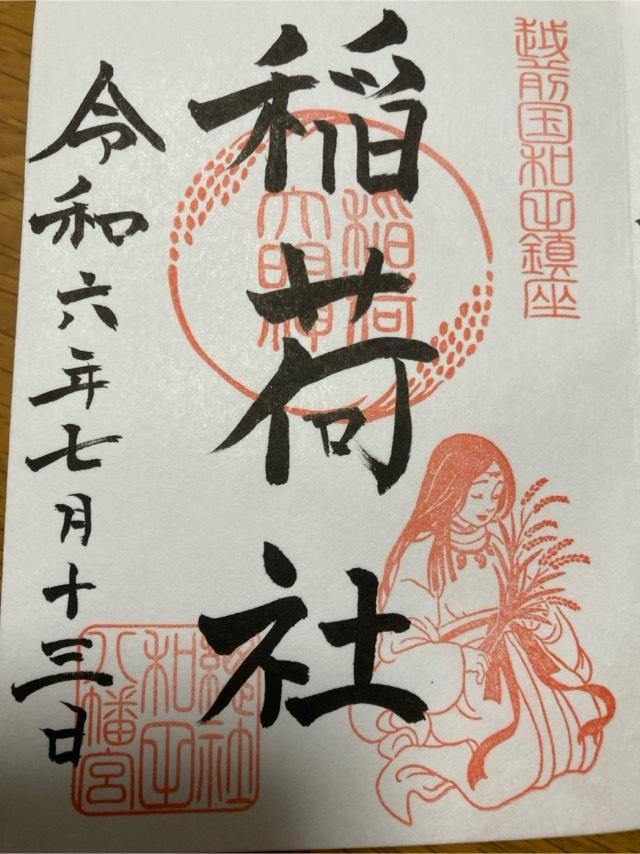 越前国和田鎮座
稲荷社
稲荷
大明神
令和六年七月十三日
總社
和田
八幡宮